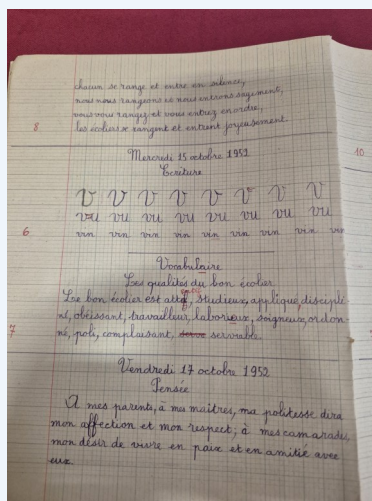 chacun se range et entre en silence,
nous nous rangeons et nous entrons sagement,
vous vous rangez et vous entrez en ordre,
8 les écoliers se rangent et entrent joyeusement.
Mercredi 15 octobre 1952
10
Ecriture
V V V V V V V V
vu vu vu vu vu vu vu vu
6 vin vin vin vin vin vin vin vin
Vocabulaire
Les qualités du bon écolier
Le bon écolier est studieux, appliqué, discipli-
né, obéissant, travailleur, laborieux, soigneux, ordon-
7 né, poli, complaisant, serviable.
Vendredi 17 octobre 1952
Pensée
A mes parents, à mes maîtres, ma politesse dira
mon affection et mon respect; à mes camarades,
mon désir de vivre en paix et en amitié avec
eux.